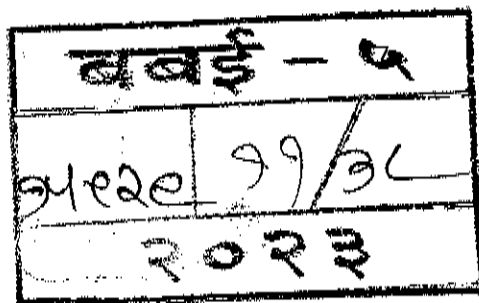 बबई - ५
१५९२९ ११/३८
२०२३